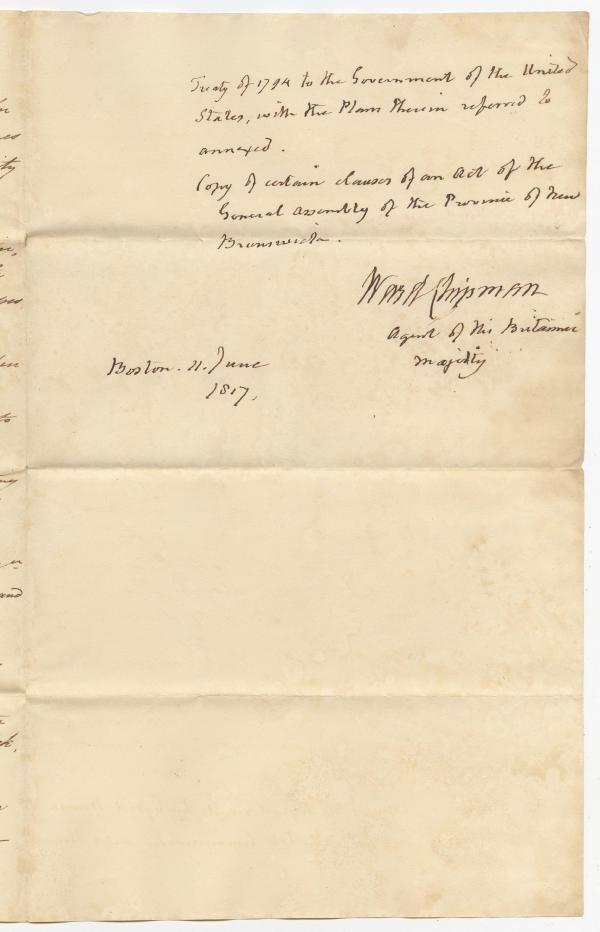 Treaty of 1794 to the Government of the United
States, with the Plans therein referred to
annexed.
Copy of certain clauses of an Act of the
General Assembly of the Province of New
Brunswick.
Ward Chipman
Agent of His Britannic
Majesty
Boston. 11. June
1817.
ty
to
and